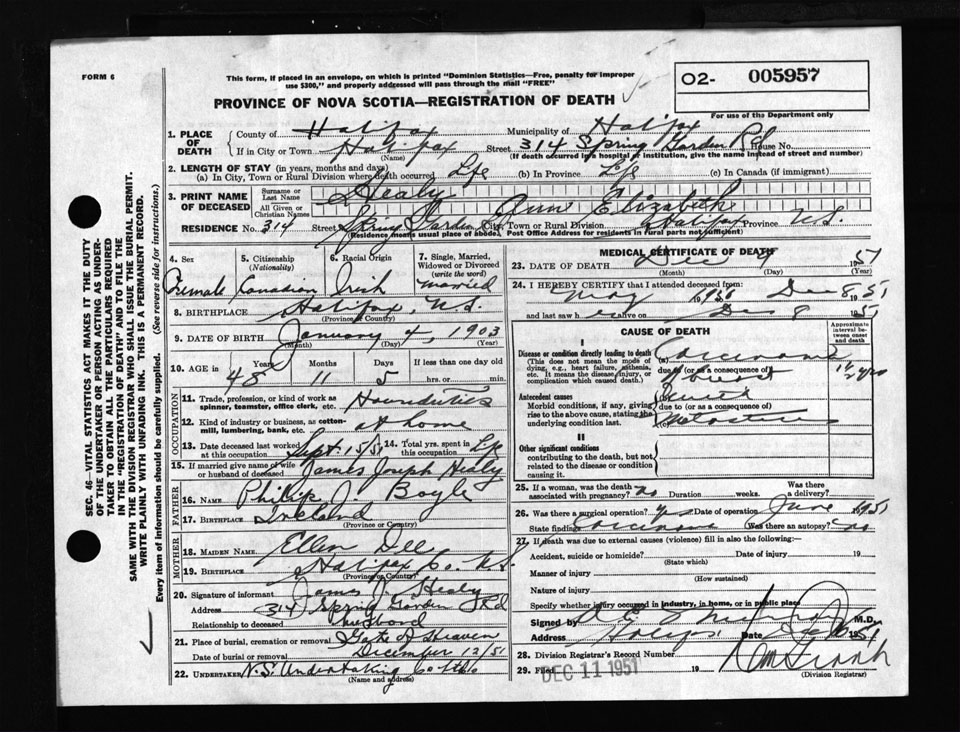 FORM 6
This form, if placed in an envelope, on which is printed "Dominion Statistics—Free, penalty for improper
use $300," and properly addressed will pass through the mail "FREE"
O2- 005957
For use of the Department only
PROVINCE OF NOVA SCOTIA—REGISTRATION OF DEATH
1. PLACE OF DEATH
County of Halifax Municipality of Halifax
If in City or Town Halifax Street 314 Spring Garden Rd House No.
(Name) (If death occurred in a hospital or institution, give the name instead of street and number)
2. LENGTH OF STAY (in years, months and days)
(a) In City, Town or Rural Division where death occurred Life (b) In Province Life (c) In Canada (if immigrant)
3. PRINT NAME OF DECEASED
Surname or Last Name Healy
All Given or Christian Names Ann Elizabeth
RESIDENCE No. 314 Street Spring Garden City, Town or Rural Division Halifax Province N.S.
(Residence means usual place of abode. Post Office Address for residents in rural parts not sufficient)
SEC. 46—VITAL STATISTICS ACT MAKES IT THE DUTY
OF THE UNDERTAKER OR PERSON ACTING AS UNDER-
TAKER TO OBTAIN ALL THE PARTICULARS REQUIRED
IN THE "REGISTRATION OF DEATH" AND TO FILE THE
SAME WITH THE DIVISION REGISTRAR WHO SHALL ISSUE THE BURIAL PERMIT.
WRITE PLAINLY WITH UNFADING INK. THIS IS A PERMANENT RECORD.
Every item of information should be carefully supplied. (See reverse side for instructions.)
4. Sex
Female
5. Citizenship (Nationality)
Canadian
6. Racial Origin
Irish
7. Single, Married, Widowed or Divorced (write the word)
married
8. BIRTHPLACE Halifax, N.S.
(Province or Country)
9. DATE OF BIRTH January 4, 1903
(Month) (Day) (Year)
10. AGE in Years Months Days If less than one day old
48 11 5 hrs. or min.
OCCUPATION
11. Trade, profession, or kind of work as
spinner, teamster, office clerk, etc. Houseduties
12. Kind of industry or business, as cotton-
mill, lumbering, bank, etc. at home
13. Date deceased last worked at this occupation Sept. 15/51
14. Total yrs. spent in this occupation Life
15. If married give name of wife or husband of deceased James Joseph Healy
FATHER
16. NAME Phillip J. Boyle
17. BIRTHPLACE Ireland
(Province or Country)
MOTHER
18. MAIDEN NAME Ellen Dee
19. BIRTHPLACE Halifax Co. N.S.
(Province or Country)
20. Signature of informant James J. Healy
Address 314 Spring Garden Rd
Relationship to deceased husband
21. Place of burial, cremation or removal Gate of Heaven
Date of burial or removal December 12/51
22. UNDERTAKER N.S. Undertaking Co
(Name and address)
MEDICAL CERTIFICATE OF DEATH
23. DATE OF DEATH Dec 9 1951
(Month) (Day) (Year)
24. I HEREBY CERTIFY that I attended deceased from:
May Dec 8 1951
and last saw h er alive on Dec 8 1951
CAUSE OF DEATH
Approximate interval between onset and death
I
Disease or condition directly leading to death (a) Carcinoma
(This does not mean the mode of dying, e.g., heart failure, asthenia, etc. It means the disease, injury, or complication which caused death.)
due to (or as a consequence of)
breast
Antecedent causes
Morbid conditions, if any, giving rise to the above cause, stating the underlying condition last.
due to (or as a consequence of)
II
Other significant conditions
contributing to the death, but not related to the disease or condition causing it.
25. If a woman, was the death associated with pregnancy? no Duration weeks. Was there a delivery?
26. Was there a surgical operation? yes Date of operation June 1951
State finding Carcinoma Was there an autopsy? no
27. If death was due to external causes (violence) fill in also the following:
Accident, suicide or homicide? Date of injury 19
(State which)
Manner of injury
(How sustained)
Nature of injury
Specify whether injury occurred in industry, in home, or in public place
Signed by M.D.
Address Halifax Date 1951
28. Division Registrar's Record Number
29. Filed DEC 11 1951 19
(Division Registrar)